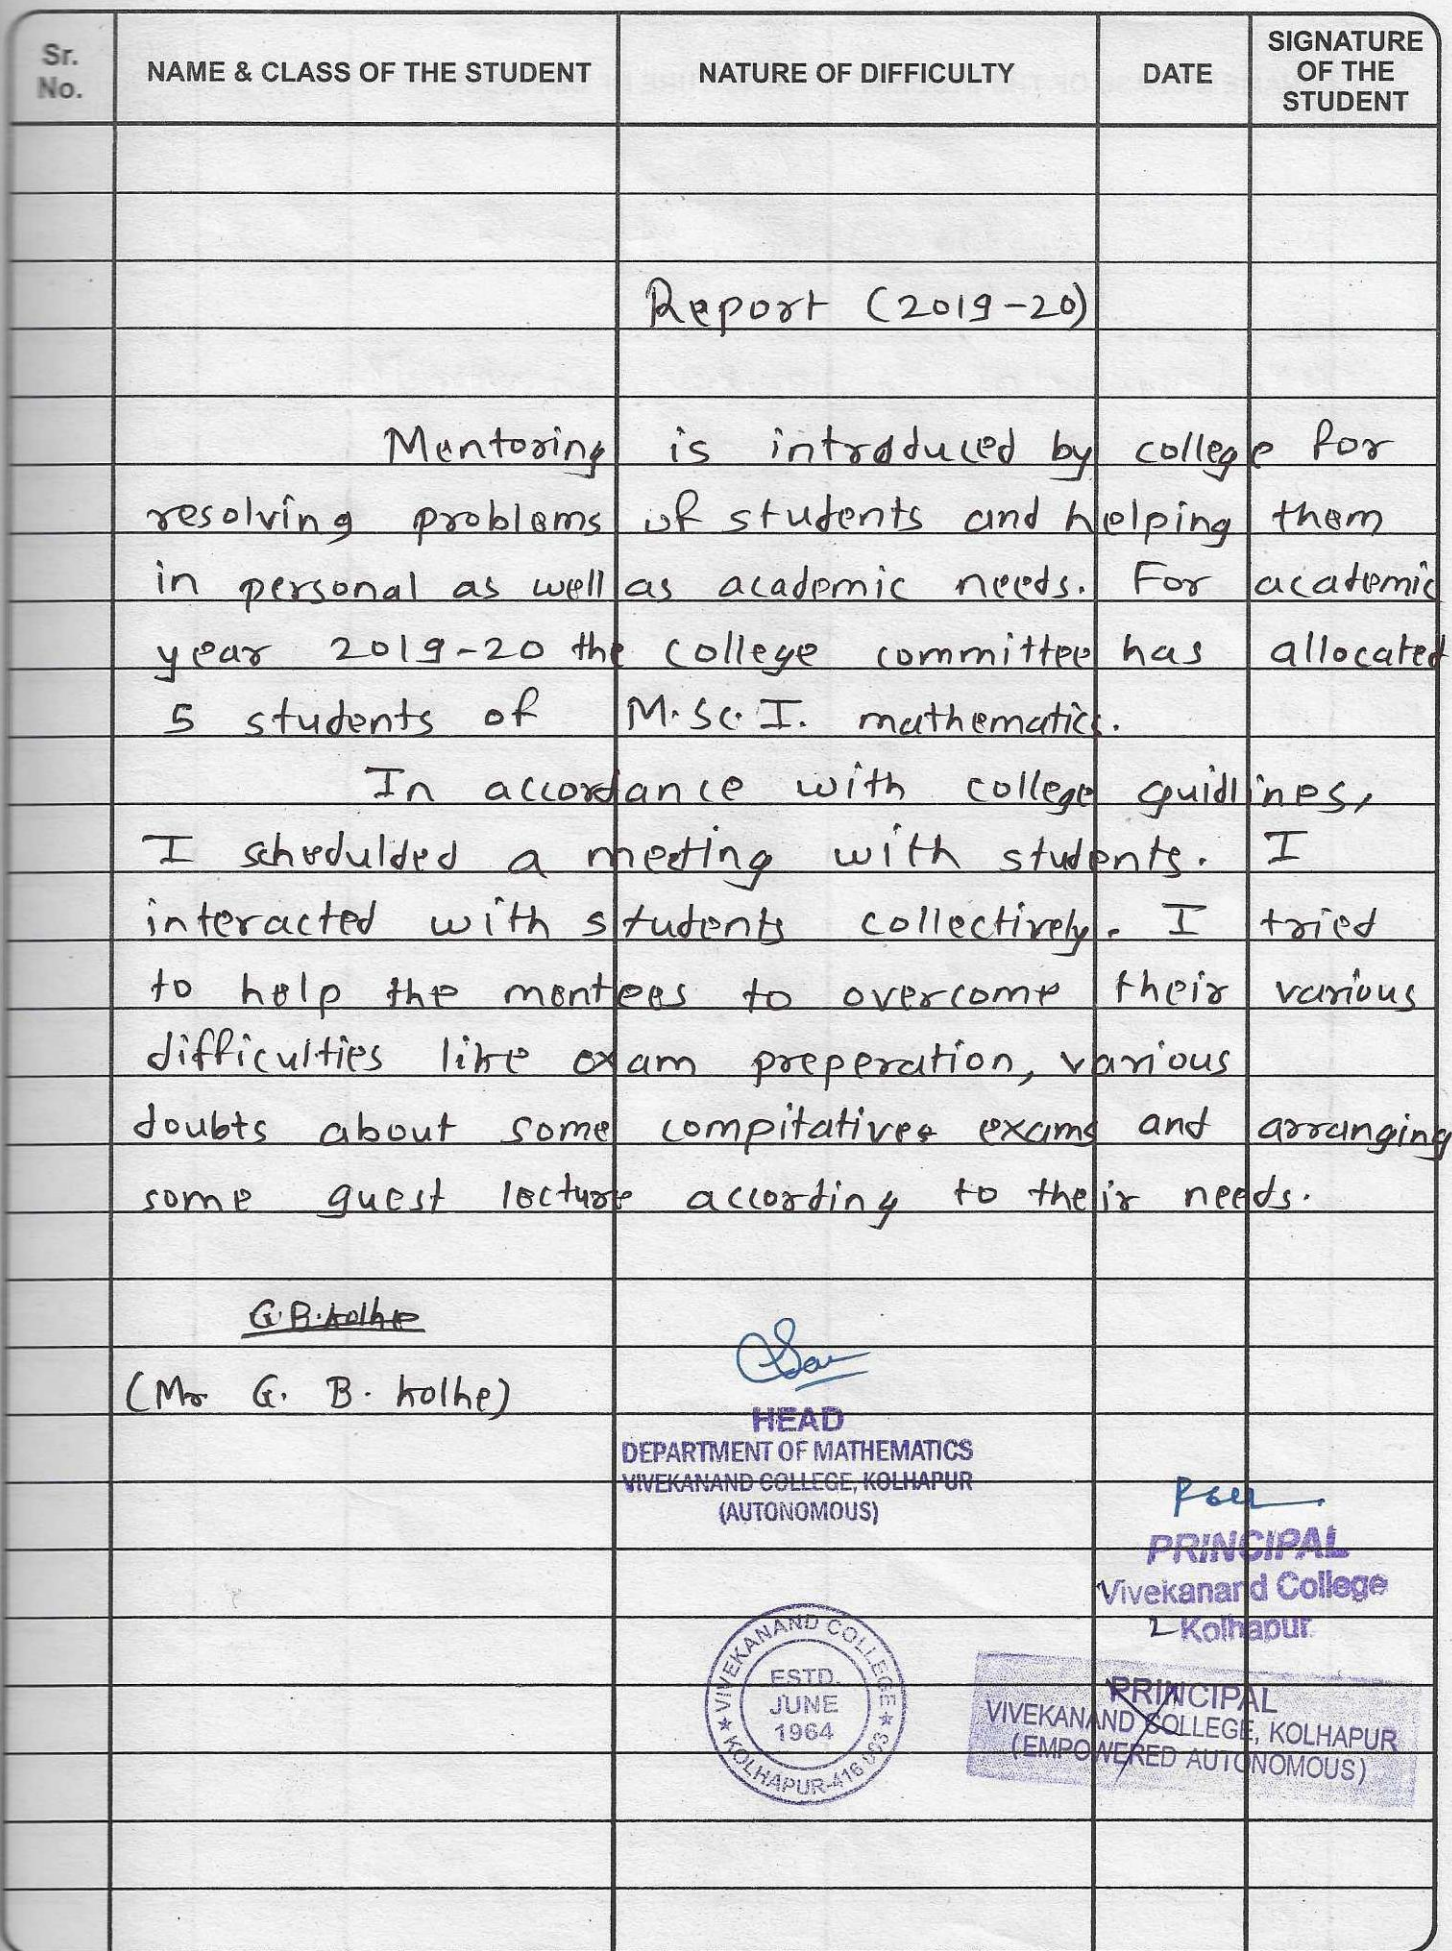 Sr. No.
NAME & CLASS OF THE STUDENT
NATURE OF DIFFICULTY
DATE
SIGNATURE OF THE STUDENT
Report (2019-20)
Mentoring is introduced by college for
resolving problems of students and helping them
in personal as well as academic needs. For academic
year 2019-20 the college committee has allocated
5 students of M.Sc. I. mathematics.
In accordance with college guidlines,
I schedulded a meeting with students. I
interacted with students collectively. I tried
to help the mentees to overcome their various
difficulties like exam preperation, various
doubts about some compitative exams and arranging
some guest lecture according to their needs.
G.B.Kolhe
(Mr G. B. Kolhe)
HEAD
DEPARTMENT OF MATHEMATICS
VIVEKANAND COLLEGE, KOLHAPUR
(AUTONOMOUS)
PRINCIPAL
Vivekanand College
Kolhapur
VIVEKANAND COLLEGE
ESTD.
JUNE
1964
KOLHAPUR-416 003
PRINCIPAL
VIVEKANAND COLLEGE, KOLHAPUR
(EMPOWERED AUTONOMOUS)